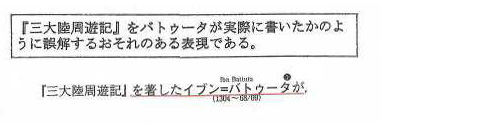 『三大陸周遊記』をバトゥータが実際に書いたかのよ
うに誤解するおそれのある表現である。
Ibn Battuta
❶
『三大陸周遊記』を著したイブン=バトゥータが,
(1304～68/69)